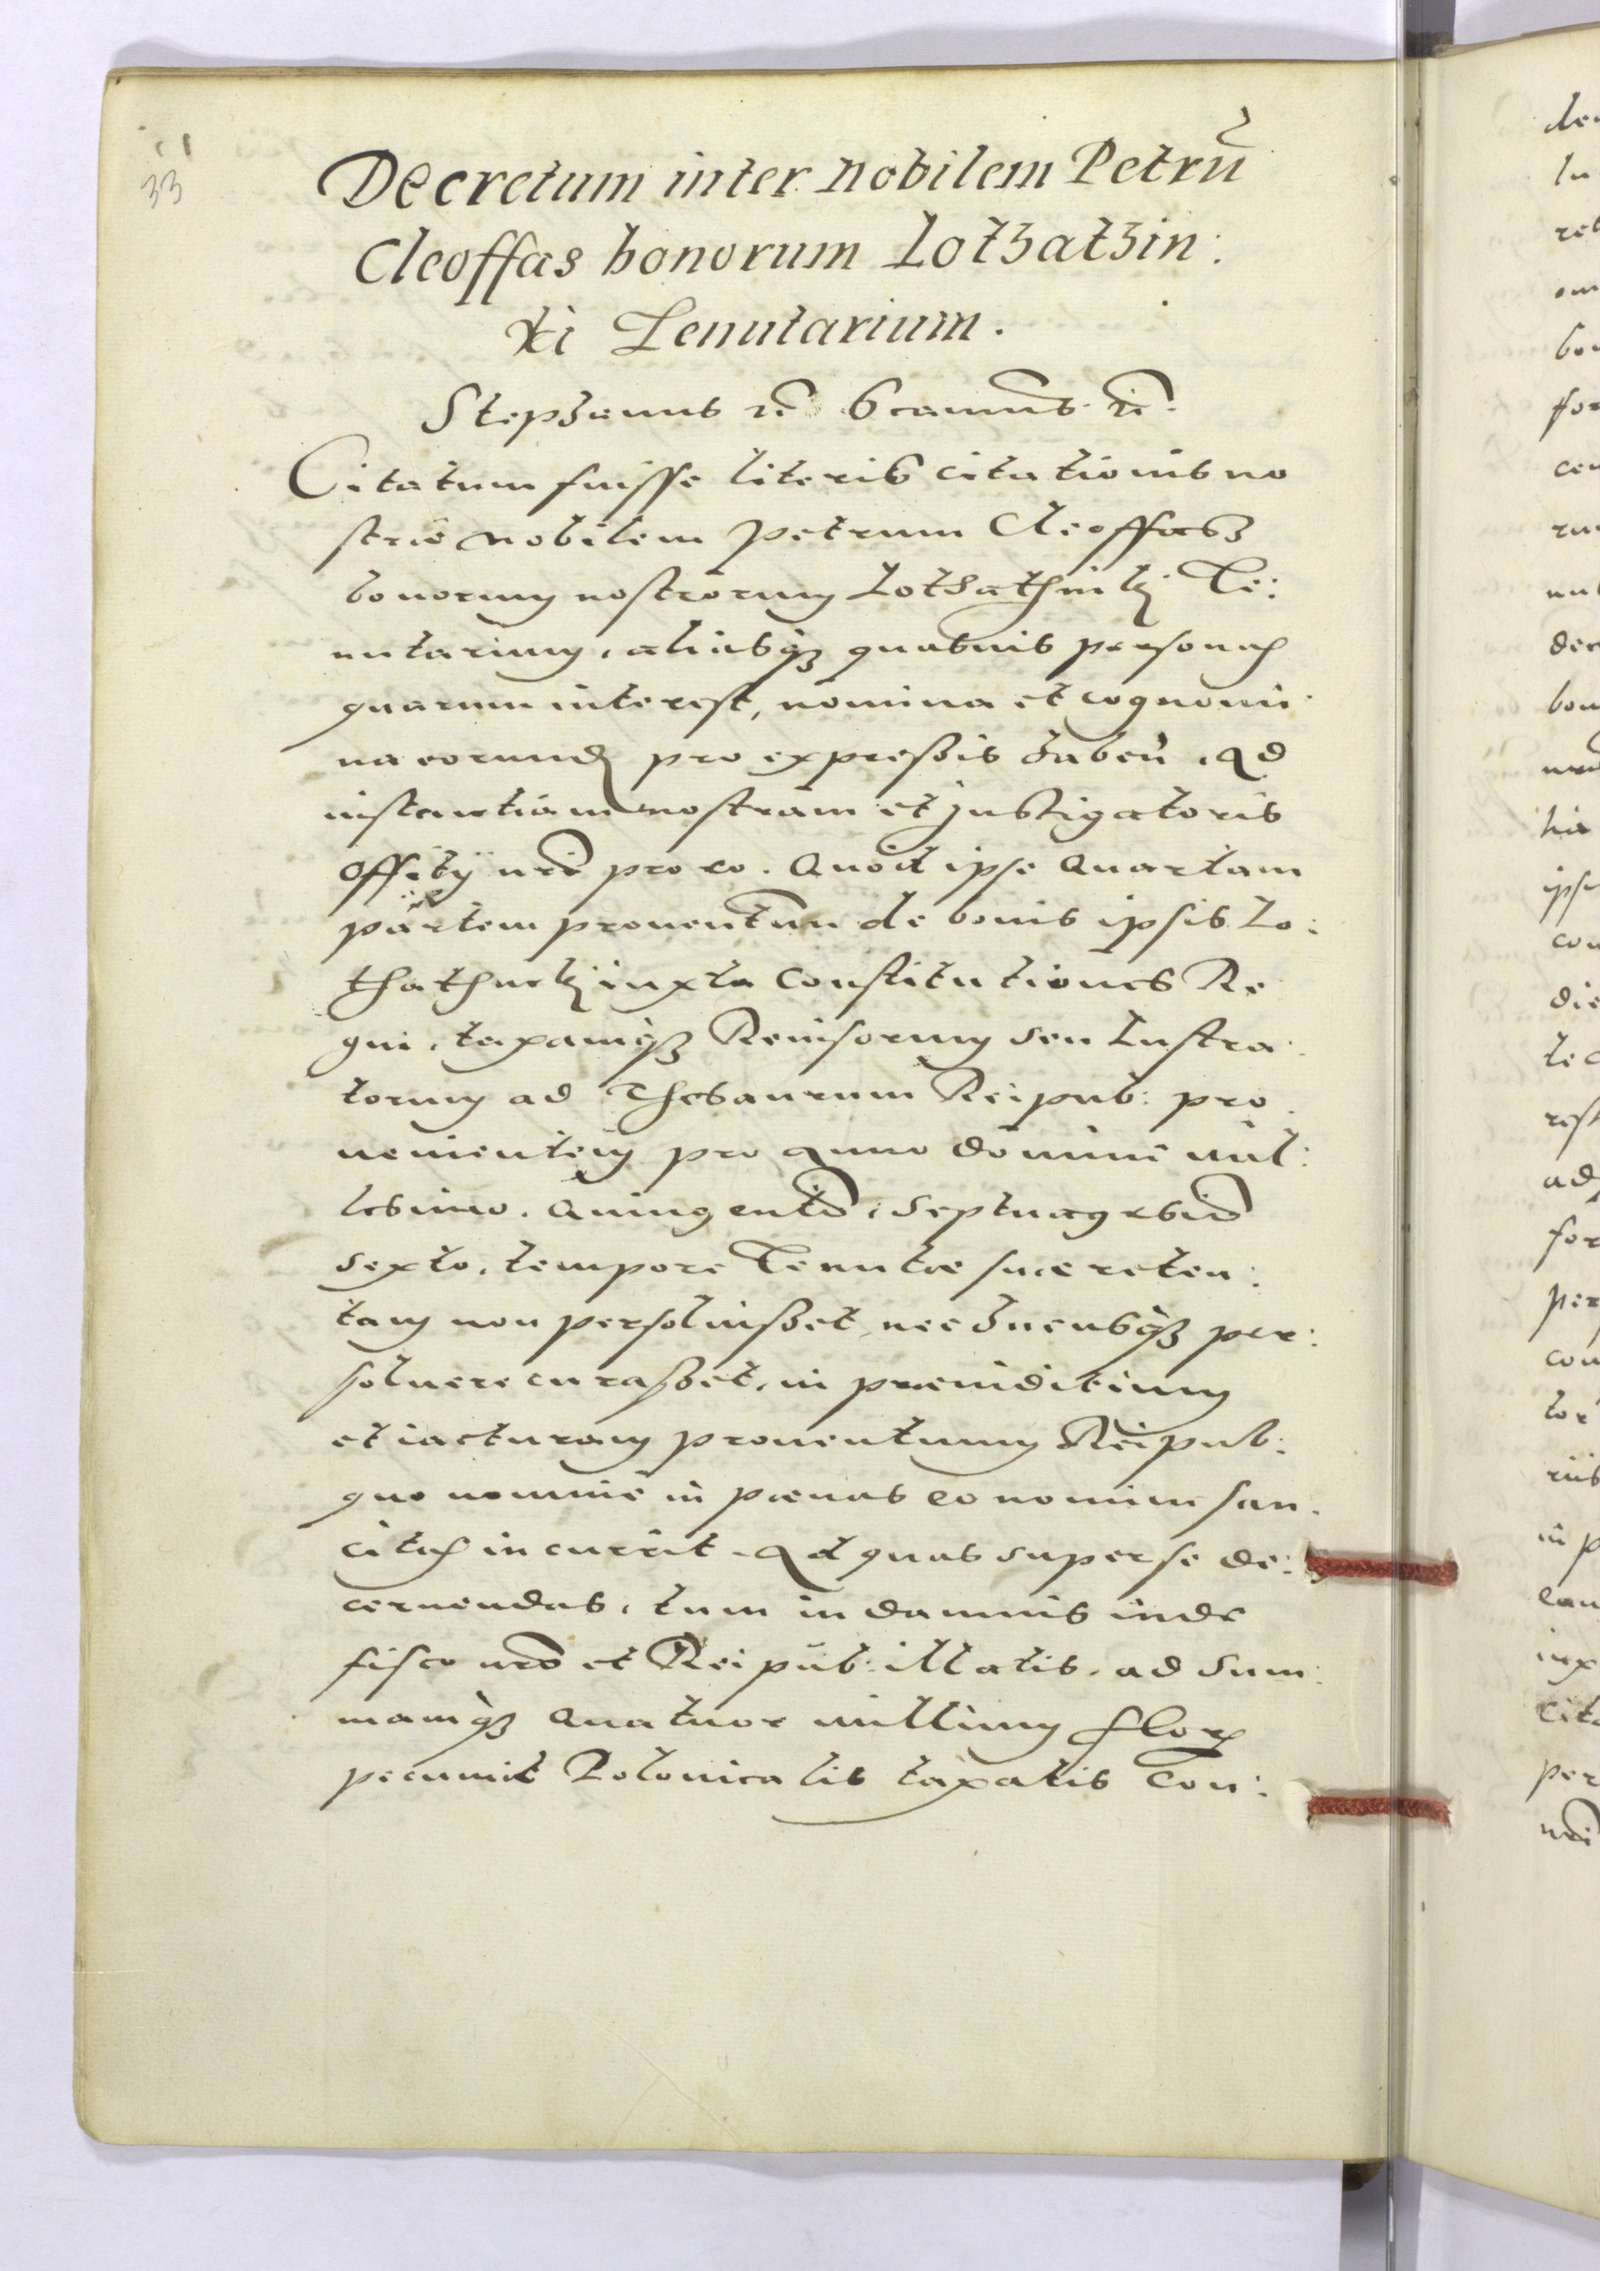 33
Decretum inter nobilem Petrū
Cleoffas bonorum Lotzatzin:
ki Tenutarium.
Stephanus rc
Citatum fuisse literis citationis no
stris nobilem Petrum Cleoffas
bonorum nostrorum Te:
nutarium, aliasqȝ quasvis personas
quarum interest, nomina et cognomi
na eorund pro expressis haben. Ad
instantiam nostram et Instigatoris
Offitij nri pro eo. Quod ipse Quartam
partem prouentuum de bonis ipsis Lo:
iuxta Constitutiones Re
gni, taxamqȝ Reuisorum seu Lustra
torum ad Thesaurum Reipub: pro
uenientem pro anno domini mil:
lesimo. Quingento, Septuagesimo
Sexto, tempore Tenutæ suæ reten:
tam non persoluisset, nec hucusqȝ per:
soluere curasset, in præiuditium
et iacturam prouentuum Reipub:
quo nomine in pœnas eo nomine san
citas incurrit. Ad quas super se de:
cernendas, tum in damnis inde
fisco nro et Reipub: illatis, ad Sum
mamqȝ Quatuor millium flor
pecuniæ Polonicalis taxatis Con: